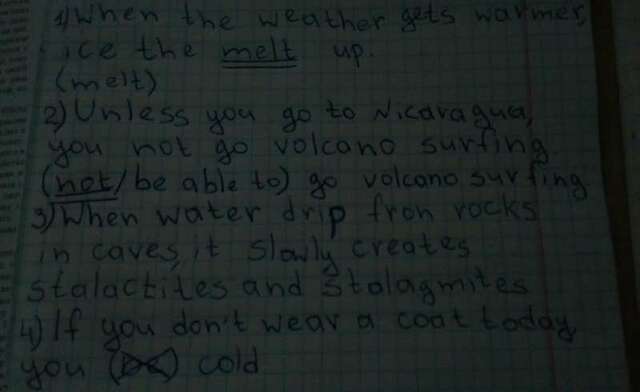 1) When the weather gets warmer,
ice the melt up.
(melt)
2) Unless you go to Nicaragua,
you not go volcano surfing
(not/be able to) go volcano surfing
3) When water drip fron rocks
in caves, it slowly creates
stalactites and stalagmites
4) If you don't wear a coat today
you (be) cold